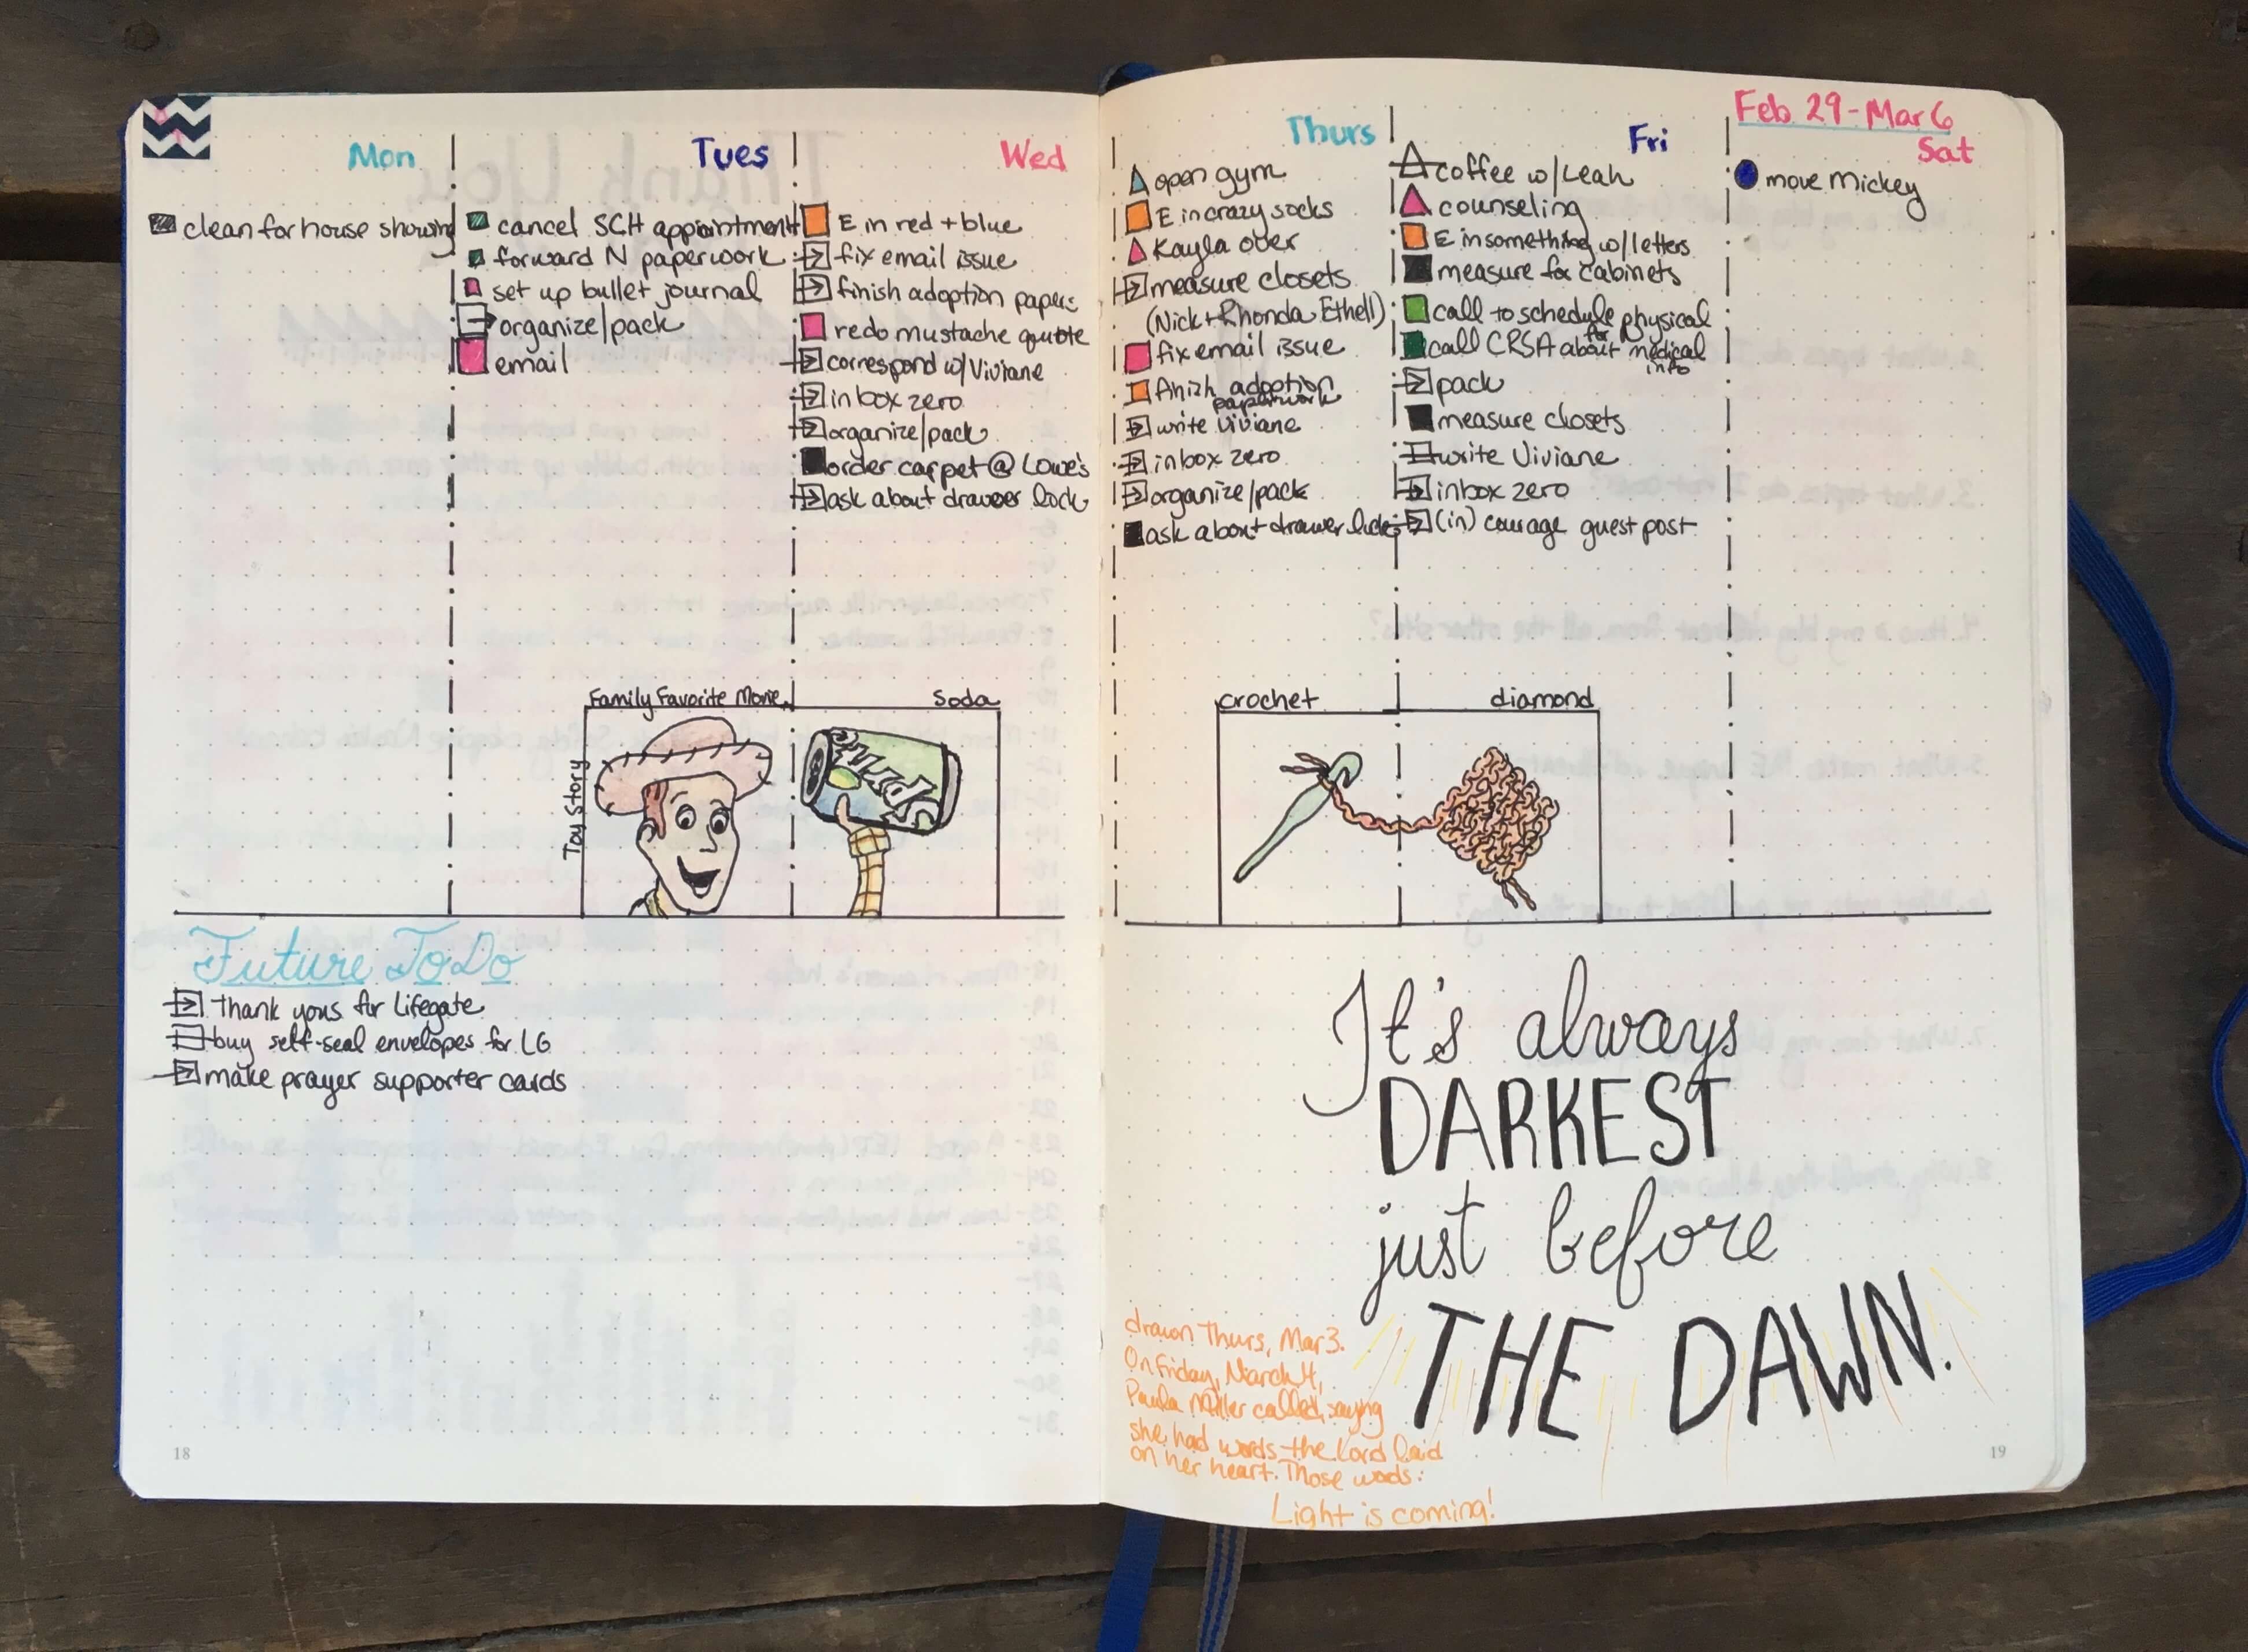 Mon
clean for house showing
Tues
cancel SCH appointment
forward N paperwork
set up bullet journal
organize/pack
email
Wed
E in red + blue
fix email issue
finish adoption papers
redo mustache quote
correspond w/ Viviane
inbox zero
organize/pack
order carpet @ Lowe's
ask about drawer lock
Family Favorite Movie
Toy Story
Soda
Sprite
Future To Do
Thank yous for Lifegate
buy self-seal envelopes for LG
make prayer supporter cards
18
Feb 29-Mar 6
Thurs
open gym
E in crazy socks
Kayla over
measure closets
(Nick + Rhonda Ethell)
fix email issue
finish adoption
paperwork
write Viviane
inbox zero
organize/pack
ask about drawer lock
Fri
coffee w/Leah
counseling
E in something w/letters
measure for cabinets
call to schedule physical
for N
call CRSA about medical
info
pack
measure closets
write Viviane
inbox zero
(in) courage guest post
Sat
move Mickey
crochet
diamond
It's always
DARKEST
just before
THE DAWN.
drawn Thurs, Mar 3.
On Friday, March 4,
Paula Miller called, saying
she had words the Lord laid
on her heart. Those words:
Light is coming!
19